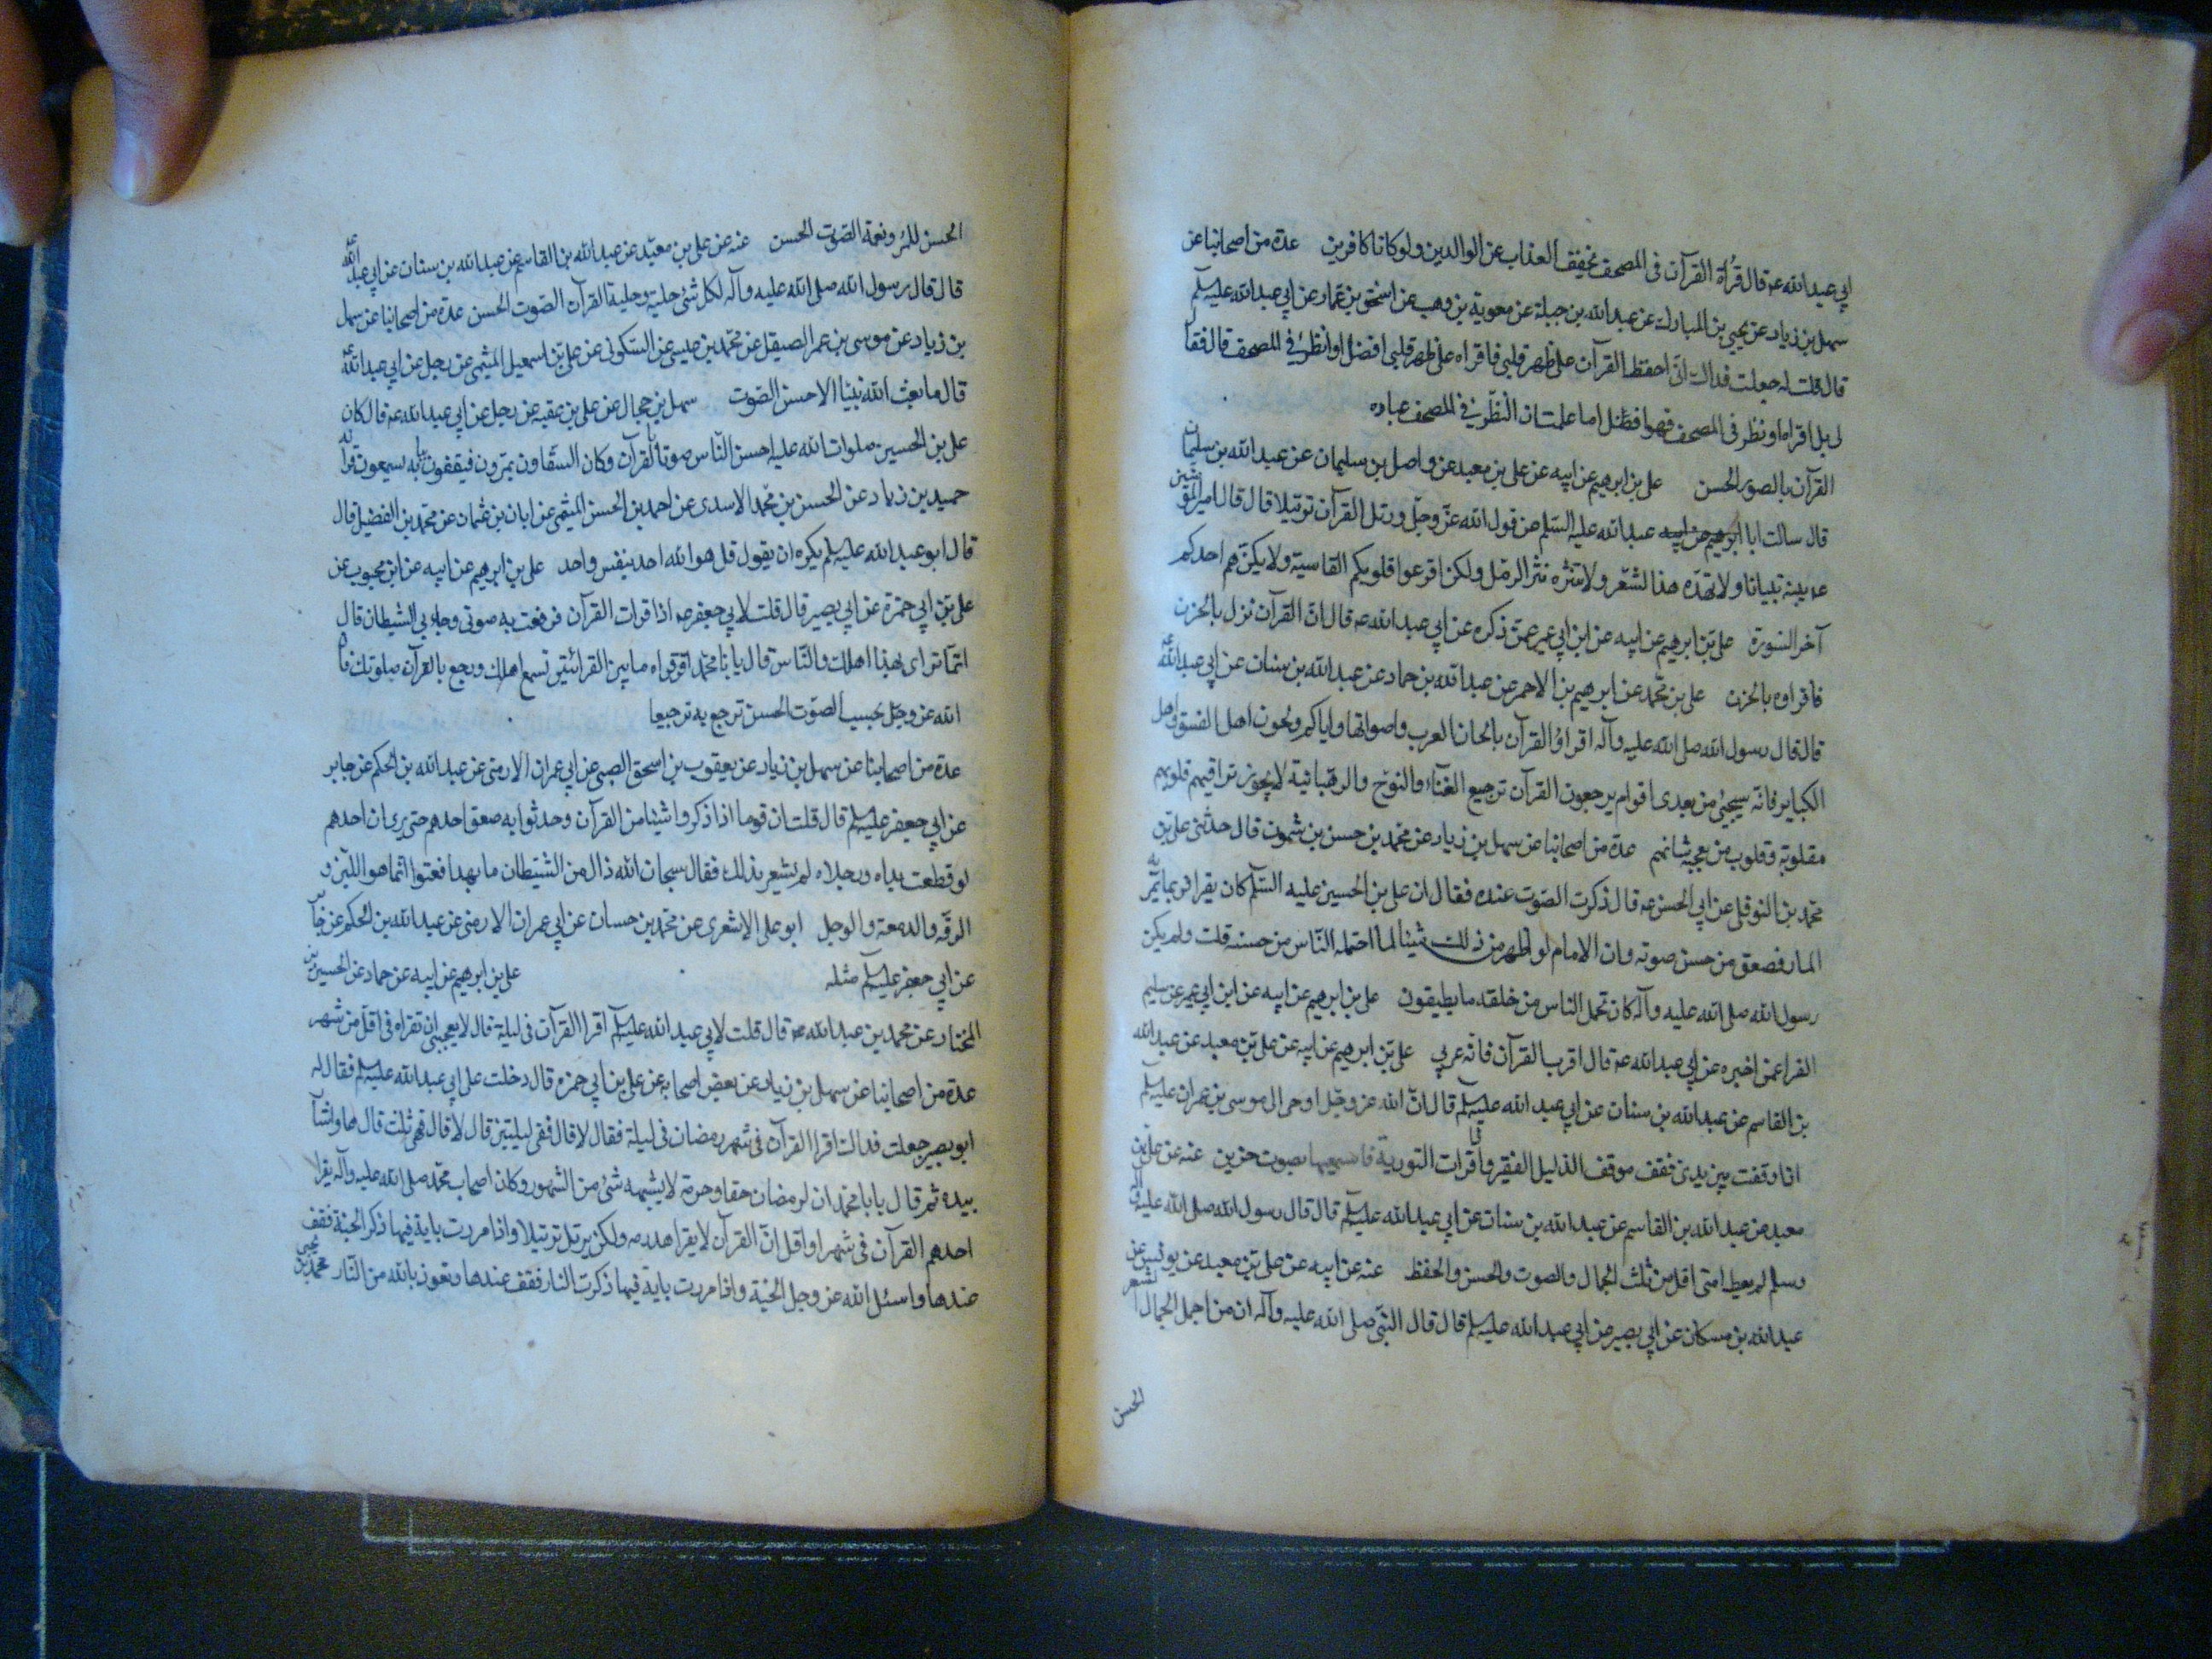 ابي عبدالله عه قال قراة القرآن فى المصحف تخفف العذاب عن الوالدين ولو كانا كافرين عدة من اصحابنا عن
سهل بن زياد عن يحيى بن المبارك عن عبدالله بن جبلة عن معوية بن وهب عن اسحق بن عمار عن ابي عبدالله عليه السلم
قال قلت له جعلت فداك انى احفظ القرآن على ظهر قلبى فاقراه على ظهر قلبى افضل او انظر فى المصحف قال فقال
لى بل اقراه وانظر فى المصحف فهو افضل اما علمت ان النظر فى المصحف عباده
القرآن بالصوت الحسن على بن ابرهيم عن ابيه عن على بن معبد عن واصل بن سليمان عن عبدالله بن سليمان
قال سالت ابا عبدالله عليه السلم عن قول الله عز وجل ورتل القرآن ترتيلا قال قال امير المؤمنين
عه بينه تبيانا ولا تهذه هذا الشعر ولا تنثره نثر الرمل ولكن اقرعوا قلوبكم القاسية ولا يكن هم احدكم
آخر السورة على بن ابرهيم عن ابيه عن ابن ابي عمير عمن ذكره عن ابي عبدالله عه قال ان القرآن نزل بالحزن
فاقراوه بالحزن على بن محمد عن ابرهيم بن الاحمر عن عبدالله بن حماد عن عبدالله بن سنان عن ابي عبدالله عه
قال قال رسول الله صلى الله عليه وآله اقراؤ القرآن بالحان العرب واصواتها واياكم ولحون اهل الفسق واهل
الكباير فانه سيجيئ من بعدى اقوام يرجعون القرآن ترجيع الغناء والنوح والرهبانية لا يجوز تراقيهم قلوبهم
مقلوبة وقلوب من يعجبه شانهم عدة من اصحابنا عن سهل بن زياد عن محمد بن حسن بن شمون قال حدثنى على بن
محمد بن النوفلى عن ابي الحسن عه قال ذكرت الصوت عنده فقال ان على بن الحسين عليه السلم كان يقرا فربما يمر به
المار فصعق من حسن صوته وان الامام لو اظهر من ذلك شيئا لما احتمله الناس من حسنه قلت ولم يكن
رسول الله صلى الله عليه وآله كان تحمل الناس من خلقه ما يطيقون على بن ابرهيم عن ابيه عن ابن ابي عمير عن سليم
الفرا عمن اخبره عن ابي عبدالله عه قال اقرب القرآن فانه عربي على بن ابرهيم عن ابيه عن على بن معبد عن عبدالله
بن القاسم عن عبدالله بن سنان عن ابي عبدالله عليه السلم قال ان الله عز وجل اوحى الى موسى بن عمران عليه السلم
اذا وقفت بين يدى فقف موقف الذليل الفقير واذا قرات التورية فاسمعيها بصوت حزين عنه عن على بن
معبد عن عبدالله بن القاسم عن عبدالله بن سنان عن ابي عبدالله عليه السلم قال قال رسول الله صلى الله عليه وآله
وسلم لم يعط امتى اقل من ثلث الجمال والصوت والحسن والحفظ عنه عن ابيه عن على بن معبد عن يونس عن
عبدالله بن مسكان عن ابي بصير عن ابي عبدالله عليه السلم قال قال النبى صلى الله عليه وآله ان من اجمل الجمال الشعر
الحسن
الحسن للمر ونغمة الصوت الحسن عنه عن على بن معبد عن عبدالله بن القاسم عن عبدالله بن سنان عن ابي عبدالله عه
قال قال رسول الله صلى الله عليه وآله لكل شئ حلية وحلية القرآن الصوت الحسن عدة من اصحابنا عن سهل
بن زياد عن موسى بن عمر الصيقل عن محمد بن عيسى عن السكونى عن على بن اسمعيل الميثمى عن رجل عن ابي عبدالله عه
قال ما بعث الله نبيا الا حسن الصوت سهل بن حجال عن على بن عقبه عن رجل عن ابي عبدالله عه قال كان
على بن الحسين صلوات الله عليه احسن الناس صوتا بالقرآن وكان السقاون يمرون فيقفون ببابه يسمعون قرآته
حميد بن زياد عن الحسن بن محمد الاسدى عن احمد بن الحسن الميثمى عن ابان بن عثمان عن محمد بن الفضيل قال
قال ابو عبدالله عليه السلم يكره ان يقول قل هو الله احد بنفس واحد على بن ابرهيم عن ابيه عن ابن محبوب عن
على بن ابي حمزة عن ابي بصير قال قلت لابي جعفر عه اذا قرات القرآن فرفعت به صوتى وجاء بى الشيطان قال
انما تراى بهذا اهلك والناس قال يابا محمد اقرقراه ما بين القرائتين تسمع اهلك ورجع بالقرآن صوتك فان
الله عز وجل يحب الصوت الحسن ترجع به ترجيعا
عدة من اصحابنا عن سهل بن زياد عن يعقوب بن اسحق الضبى عن ابي عمران الارمنى عن عبدالله بن الحكم عن جابر
عن ابي جعفر عليه السلم قال قلت ان قوما اذا ذكروا شيئا من القرآن وحدثوا به صعق احدهم حتى يرى ان احدهم
لو قطعت يداه ورجلاه لم يشعر بذلك فقال سبحان الله ذاك من الشيطان ما بهذا فعتوا انما هو اللين و
الرقه والدمعة والوجل ابو على الاشعرى عن محمد بن حسان عن ابي عمران الارمنى عن عبدالله بن الحكم عن جابر
عن ابي جعفر عليه السلم مثله على بن ابرهيم عن ابيه عن حماد عن الحسين بن
المختار عن محمد بن عبدالله عه قال قلت لابي عبدالله عليه السلم اقرا القرآن فى ليلة قال لا يعجبنى ان تقراه فى اقل من شهر
عدة من اصحابنا عن سهل بن زياد عن بعض اصحابه عن على بن ابي حمزه قال دخلت على ابي عبدالله عليه السلم فقال له
ابو بصير جعلت فداك اقرا القرآن فى شهر رمضان فى ليلة فقال لا قال ففى ليلتين قال لا قال فهى ثلث قال ها واشار
بيده ثم قال يابا محمد ان لرمضان حقا وحرمة لا يشبهه شئ من الشهور وكان اصحاب محمد صلى الله عليه وآله يقرا
احدهم القرآن فى شهر او اقل ان القرآن لا يقرا هدرمه ولكن يرتل ترتيلا واذا مررت باية فيها ذكر الجنة فقف
عندها واسئل الله عز وجل الجنة واذا مررت باية فيها ذكرت النار فقف عندها وتعوذ بالله من النار محمد بن يحيى